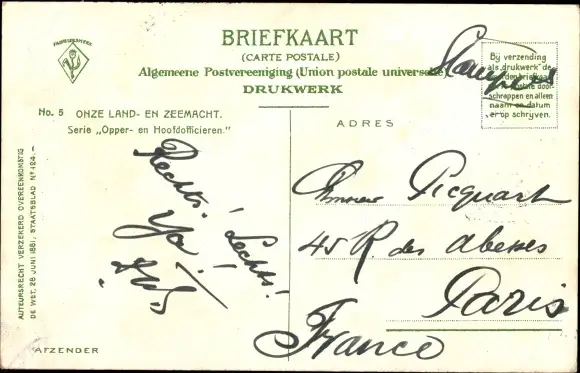 FABRIEKSMERK
BRIEFKAART
(CARTE POSTALE)
Algemeene Postvereeniging (Union postale universelle)
DRUKWERK
Bij verzending
als „drukwerk" de
schrappen en alleen
naam en datum
er op schrijven.
No. 5 ONZE LAND- EN ZEEMACHT.
Serie „Opper- en Hoofdofficieren."
AUTEURSRECHT VERZEKERD OVEREENKOMSTIG
DE WET, 28 JUNI 1881, STAATSBLAD No 124.—
Rechts! Lechts!
Ya!
ADRES
Picquart
45 R. des Abesses
Paris
France
AFZENDER